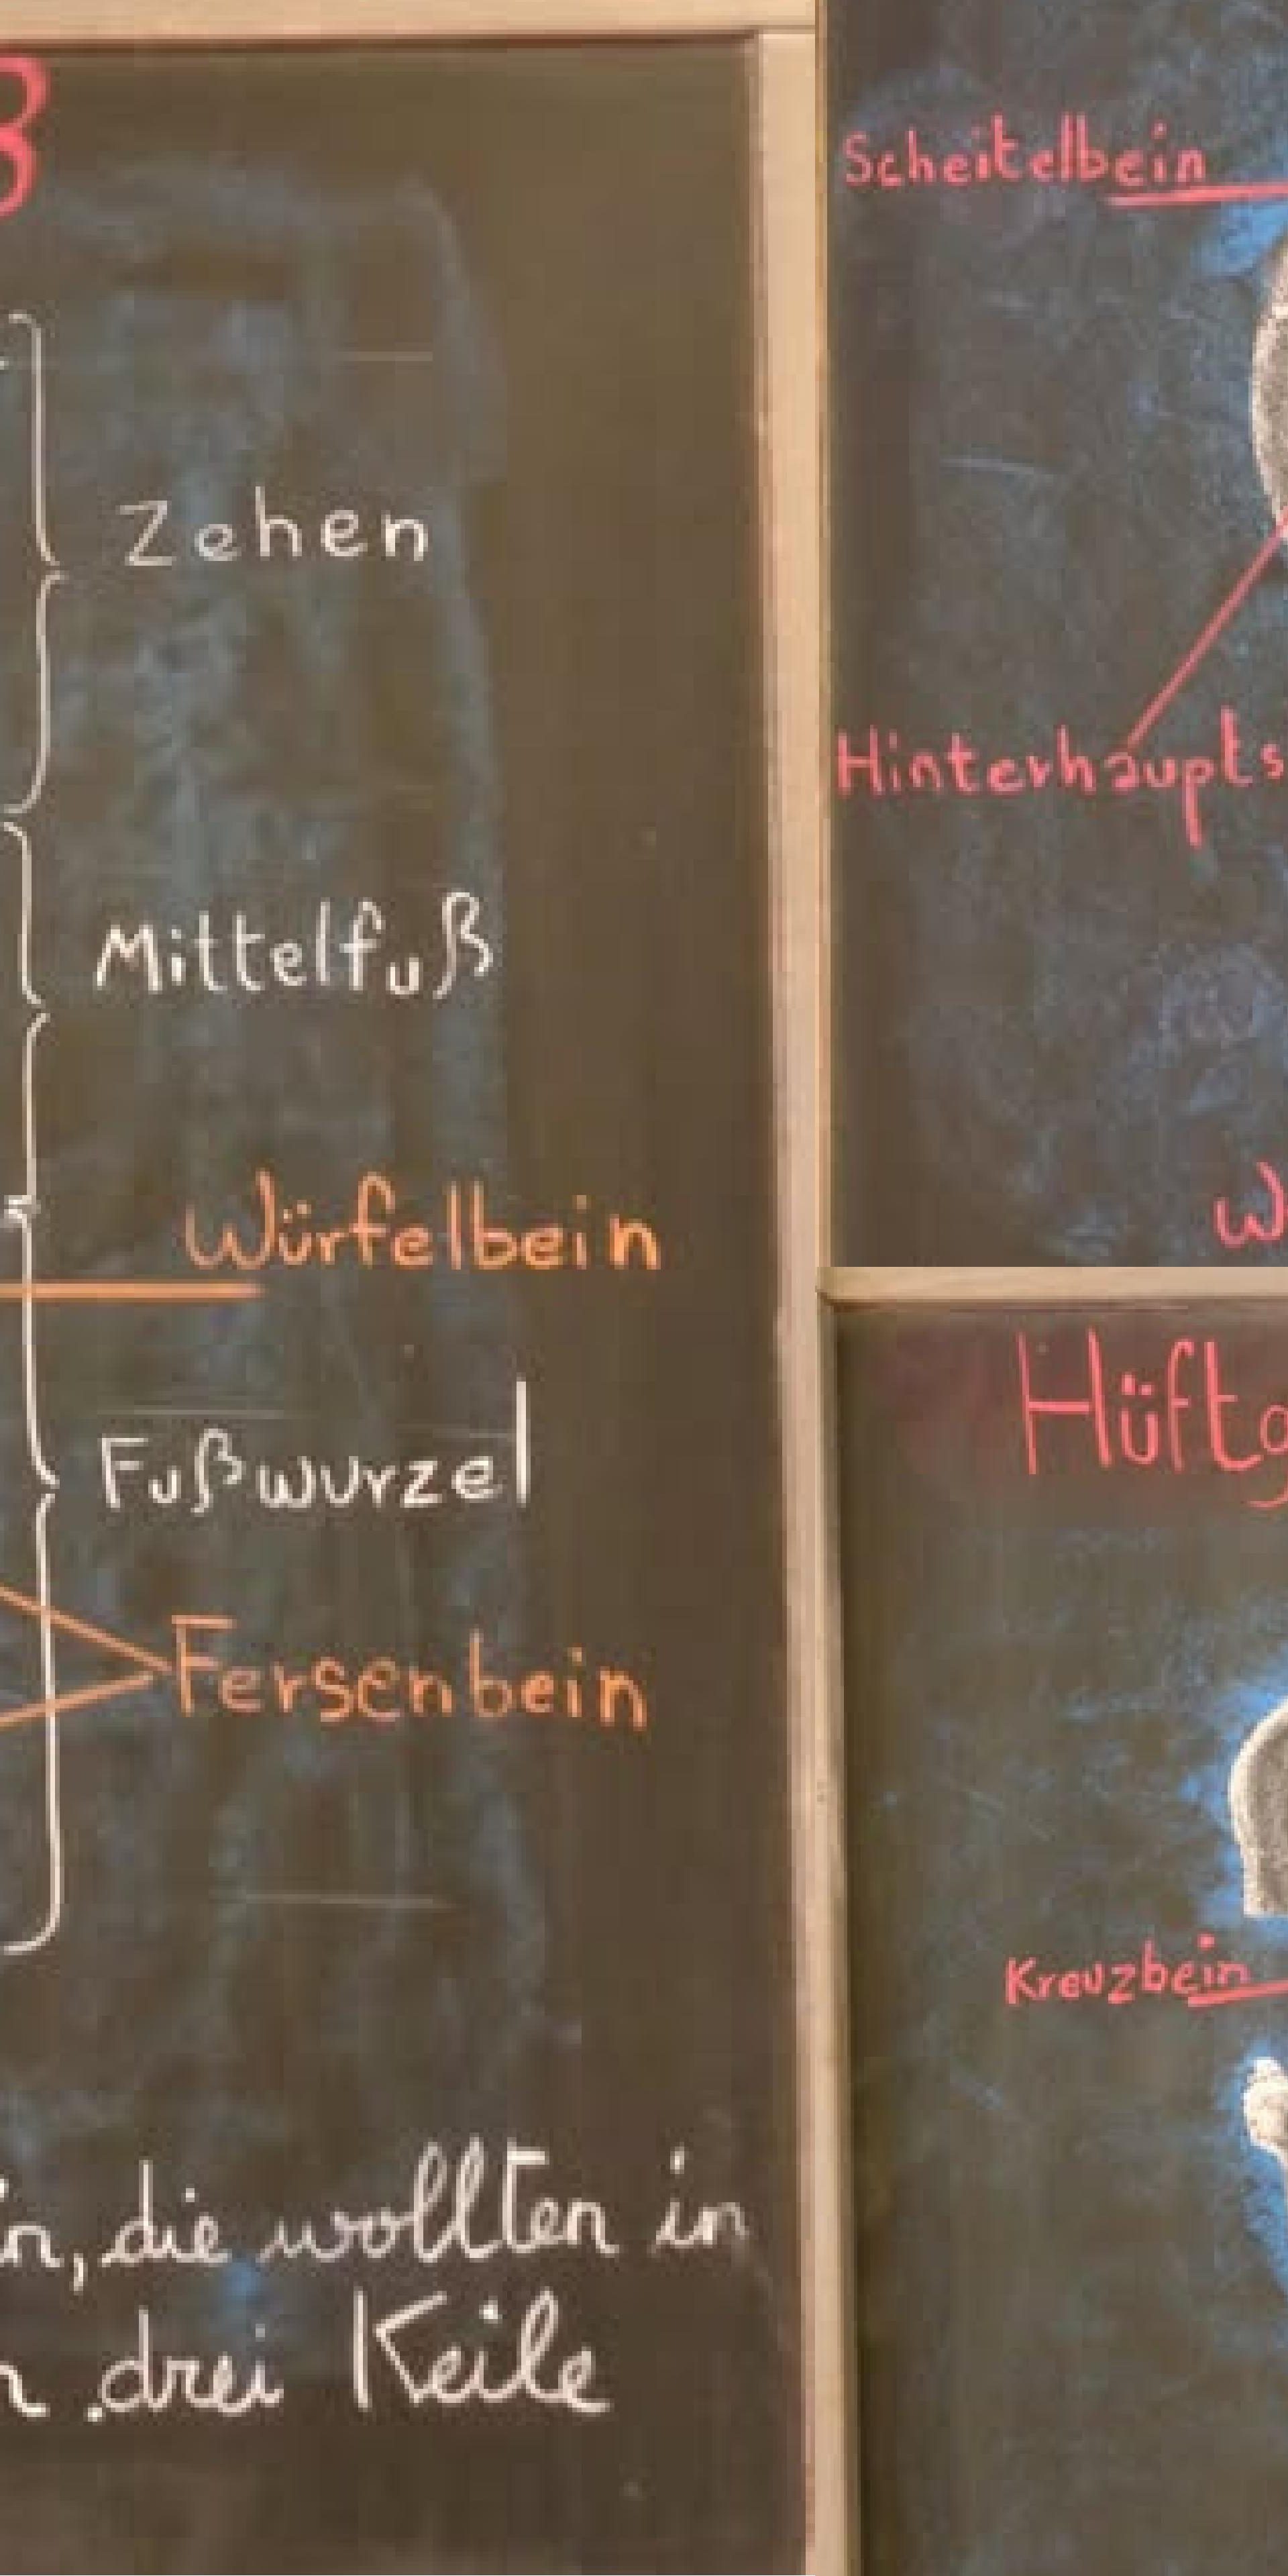 ß
Zehen
Mittelfuß
Würfelbein
Fußwurzel
Fersenbein
in, die wollten in
n drei Keile
Scheitelbein
Hinterhaupts
W
Hüftg
Kreuzbein